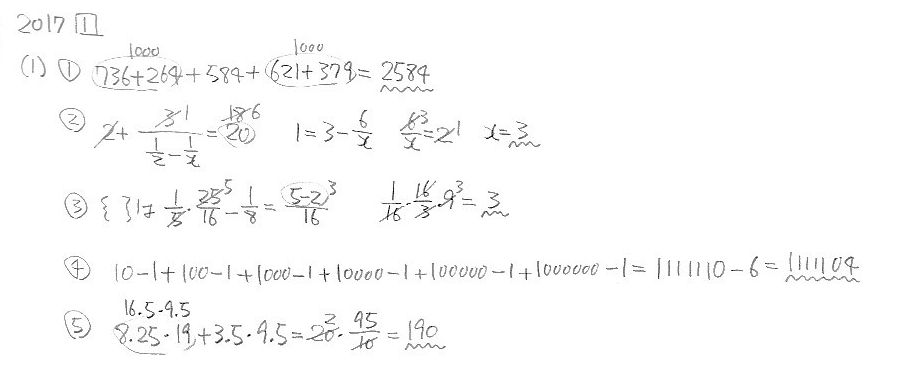 2017 1
1000 1000
(1) ① 736+264+584+621+379=2584
② 2+3/(1/2-1/x)=20 186 1=3-6/x 6/x=2 x=3
③ { }は 1/5・25/16-1/8=5-2/16 1/16・16/3・9=3
④ 10-1+100-1+1000-1+10000-1+100000-1+1000000-1=1111110-6=1111104
16.5・9.5
⑤ 8.25・19+3.5・9.5=20・95/10=190